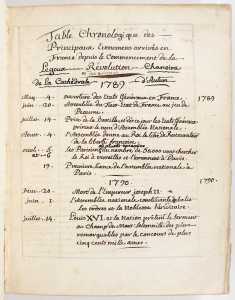 Table Chronologique des
Principaux Evenemens arrivés en
France depuis le Commencement de la
Révolution Chanoine
de la Cathédrale d'Autun
1789
May. - 4 - ouverture des Etats Généraux en France. 1789
juin. - 20. - Assemblée du Tiers-Etat de France au jeu de
Paume.
juillet. 14 Prise de la Bastille
prennent le nom d'Assemblée Nationale.
Aout. - 4 l'Assemblée donne au Roi le titre de Restaurateur
de la liberté françoise.
octob. - 5 les Parisiens au nombre de 30000 vont chercher
et - 6 le Roi à versailles et l'emmenent à Paris.
19 Premiere séance de l'assemblée nationale à
Paris.
1790 1790.
Fevr. - 20. Mort de l'empereur joseph II
juin. - l'Assemblée nationale
les ordres et la Noblesse héréditaire.
juillet. - 14 Louis XVI. et la Nation prêtent le serment
au Champ de Mars. Solemnité des plus
remarquables par le concours de plus
cinq cent mille ames.